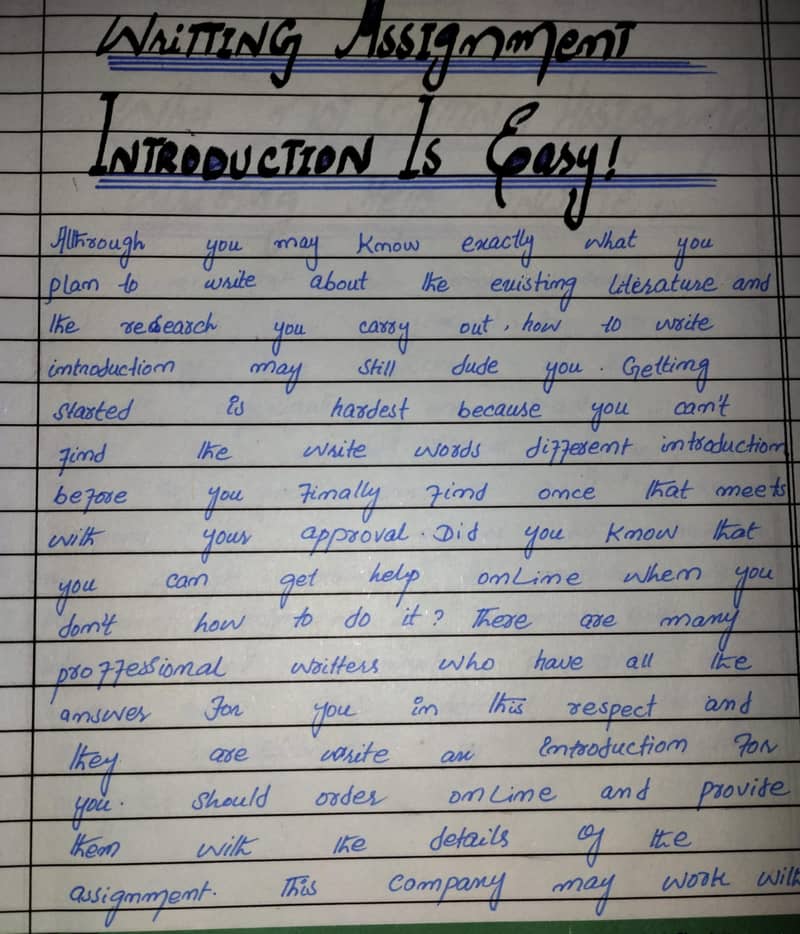 WRITTING ASSIGNMENT
INTRODUCTION IS EASY!
Althrough you may know exactly what you
plan to write about the existing literature and
the research you carry out, how to write
introduction may still dude you. Getting
started is hardest because you can't
find the write words different introduction
before you finally find once that meets
with your approval. Did you know that
you can get help online when you
don't how to do it? There are many
proffessional writters who have all the
answer for you in this respect and
they are write an Introduction for
you. Should order online and provite
them with the details of the
assignment. This company may work with